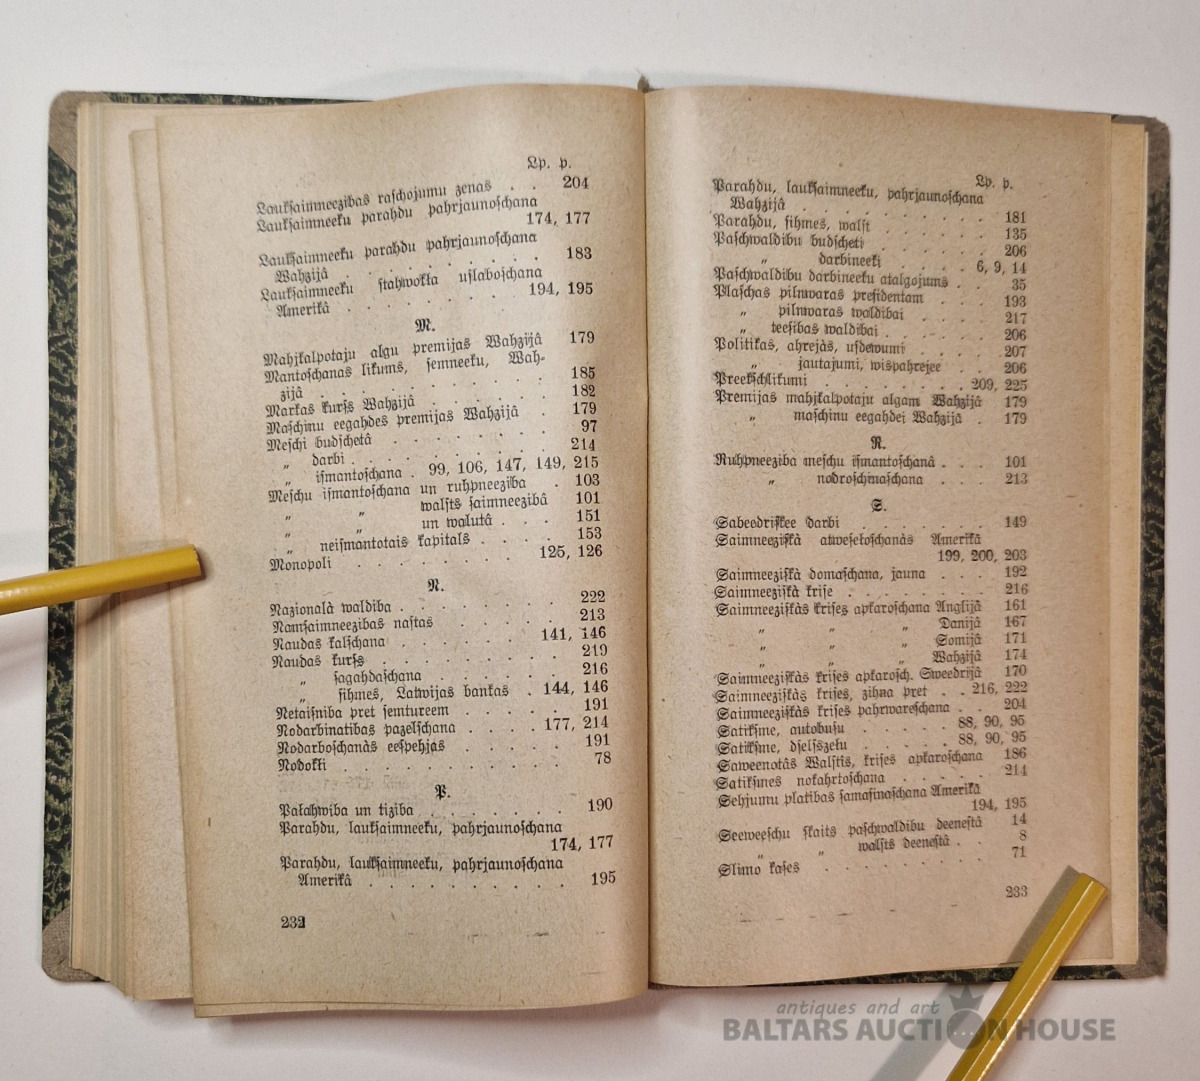 Lp. p.
Lauksaimneezibas raschojumu zenas . . 204
Lauksaimneeku parahdu pahrjaunoschana
174, 177
Lauksaimneeku parahdu pahrjaunoschana
Wahzijâ . . . . . . . . . 183
Lauksaimneeku stahwokla uslaboschana
Amerikâ . . . . . . 194, 195
M.
Mahjkalpotaju algu premijas Wahzijâ 179
Mantoschanas likums, semneeku, Wah-
zijâ . . . . . . . . . 185
Markas kurss Wahzijâ . . . . . . 182
Maschinu eegahdes premijas Wahzijâ . 179
Meschi budschetâ . . . . . . . 97
„ darbi . . . . . . . . . 214
„ ismantoschana . 99, 106, 147, 149, 215
Meschu ismantoschana un ruhpneeziba . 103
„ „ walsts saimneezibâ 101
„ „ un walutâ . . . 151
„ neismantotais kapitals . . . . 153
Monopoli . . . . . . . 125, 126
N.
Nazionalà waldiba . . . . . . . 222
Namsaimneezibas nastas . . . . . 213
Naudas kalschana . . . . . 141, 146
Naudas kurss . . . . . . . . 219
„ sagahdaschana . . . . . . 216
„ sihmes, Latwijas bankas . 144, 146
Netaisniba pret semtureem . . . . . 191
Nodarbinatibas pazelschana . . . . 177, 214
Nodarboschanàs eespehjas . . . . . 191
Nodokli . . . . . . . . . 78
P.
Paļahwiba un tiziba . . . . . . 190
Parahdu, lauksaimneeku, pahrjaunoschana
174, 177
Parahdu, lauksaimneeku, pahrjaunoschana
Amerikâ . . . . . . . . . 195
232
Lp. p.
Parahdu, lauksaimneeku, pahrjaunoschana
Wahzijâ . . . . . . . . . 181
Parahdu, sihmes, walst . . . . . . 135
Paschwaldibu budscheti . . . . . . 206
„ darbineeki . . . . 6, 9, 14
Paschwaldibu darbineeku atalgojums . . 35
Plaschas pilnwaras presidentam . . . 193
„ pilnwaras waldibai . . . . 217
„ teesibas waldibai . . . . . . 206
Politikas, ahrejàs, usdewumi . . . . 207
„ jautajumi, wispahrejee . . . 206
Preekschlikumi . . . . . . . 209, 225
Premijas mahjkalpotaju algam Wahzijâ 179
„ maschinu eegahdei Wahzijâ . 179
R.
Ruhpneeziba meschu ismantoschanâ . . . 101
„ nodroschinaschana . . . . 213
S.
Sabeedriskee darbi . . . . . . . 149
Saimneeziskà atweseļoschanàs Amerikâ
199, 200, 203
Saimneeziskà domaschana, jauna . . . 192
Saimneeziskà krise . . . . . . . 216
Saimneeziskàs krises apkaroschana Anglijâ 161
„ „ „ Danijâ 167
„ „ „ Somijâ 171
„ „ „ Wahzijâ 174
Saimneeziskàs krises apkarosch. Sweedrijâ 170
Saimneeziskàs krises, zihņa pret . . 216, 222
Saimneeziskàs krises pahrwareschana . . 204
Satiksme, autobusu . . . . . 88, 90, 95
Satiksme, dselszeļu . . . . . . 88, 90, 95
Saweenotâs Walstis, krises apkaroschana 186
Satiksmes nokahrtoschana . . . . . 214
Sehjumu platibas samasinaschana Amerikâ
194, 195
Seeweeschu skaits paschwaldibu deenestâ 14
„ „ walsts deenestâ . . 8
Slimo kases . . . . . . . . 71
233
antiques and art
BALTARS AUCTION HOUSE